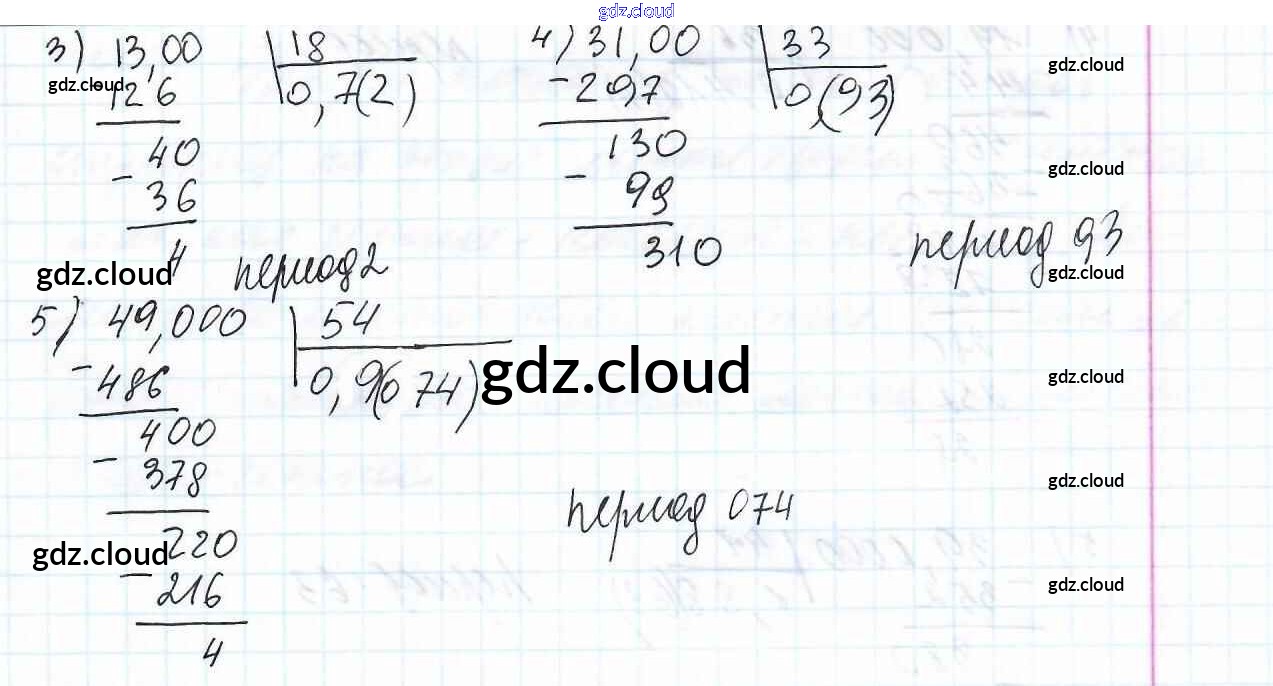 gdz.cloud
3) 13,00 | 18
- 126 | 0,7(2)
40
- 36
4
период 2
4) 31,00 | 33
- 297 | 0,(93)
130
- 99
310
период 93
5) 49,000 | 54
- 486 | 0,9(074)
400
- 378
220
- 216
4
период 074
gdz.cloud
gdz.cloud
gdz.cloud
gdz.cloud
gdz.cloud
gdz.cloud
gdz.cloud
gdz.cloud
gdz.cloud
gdz.cloud